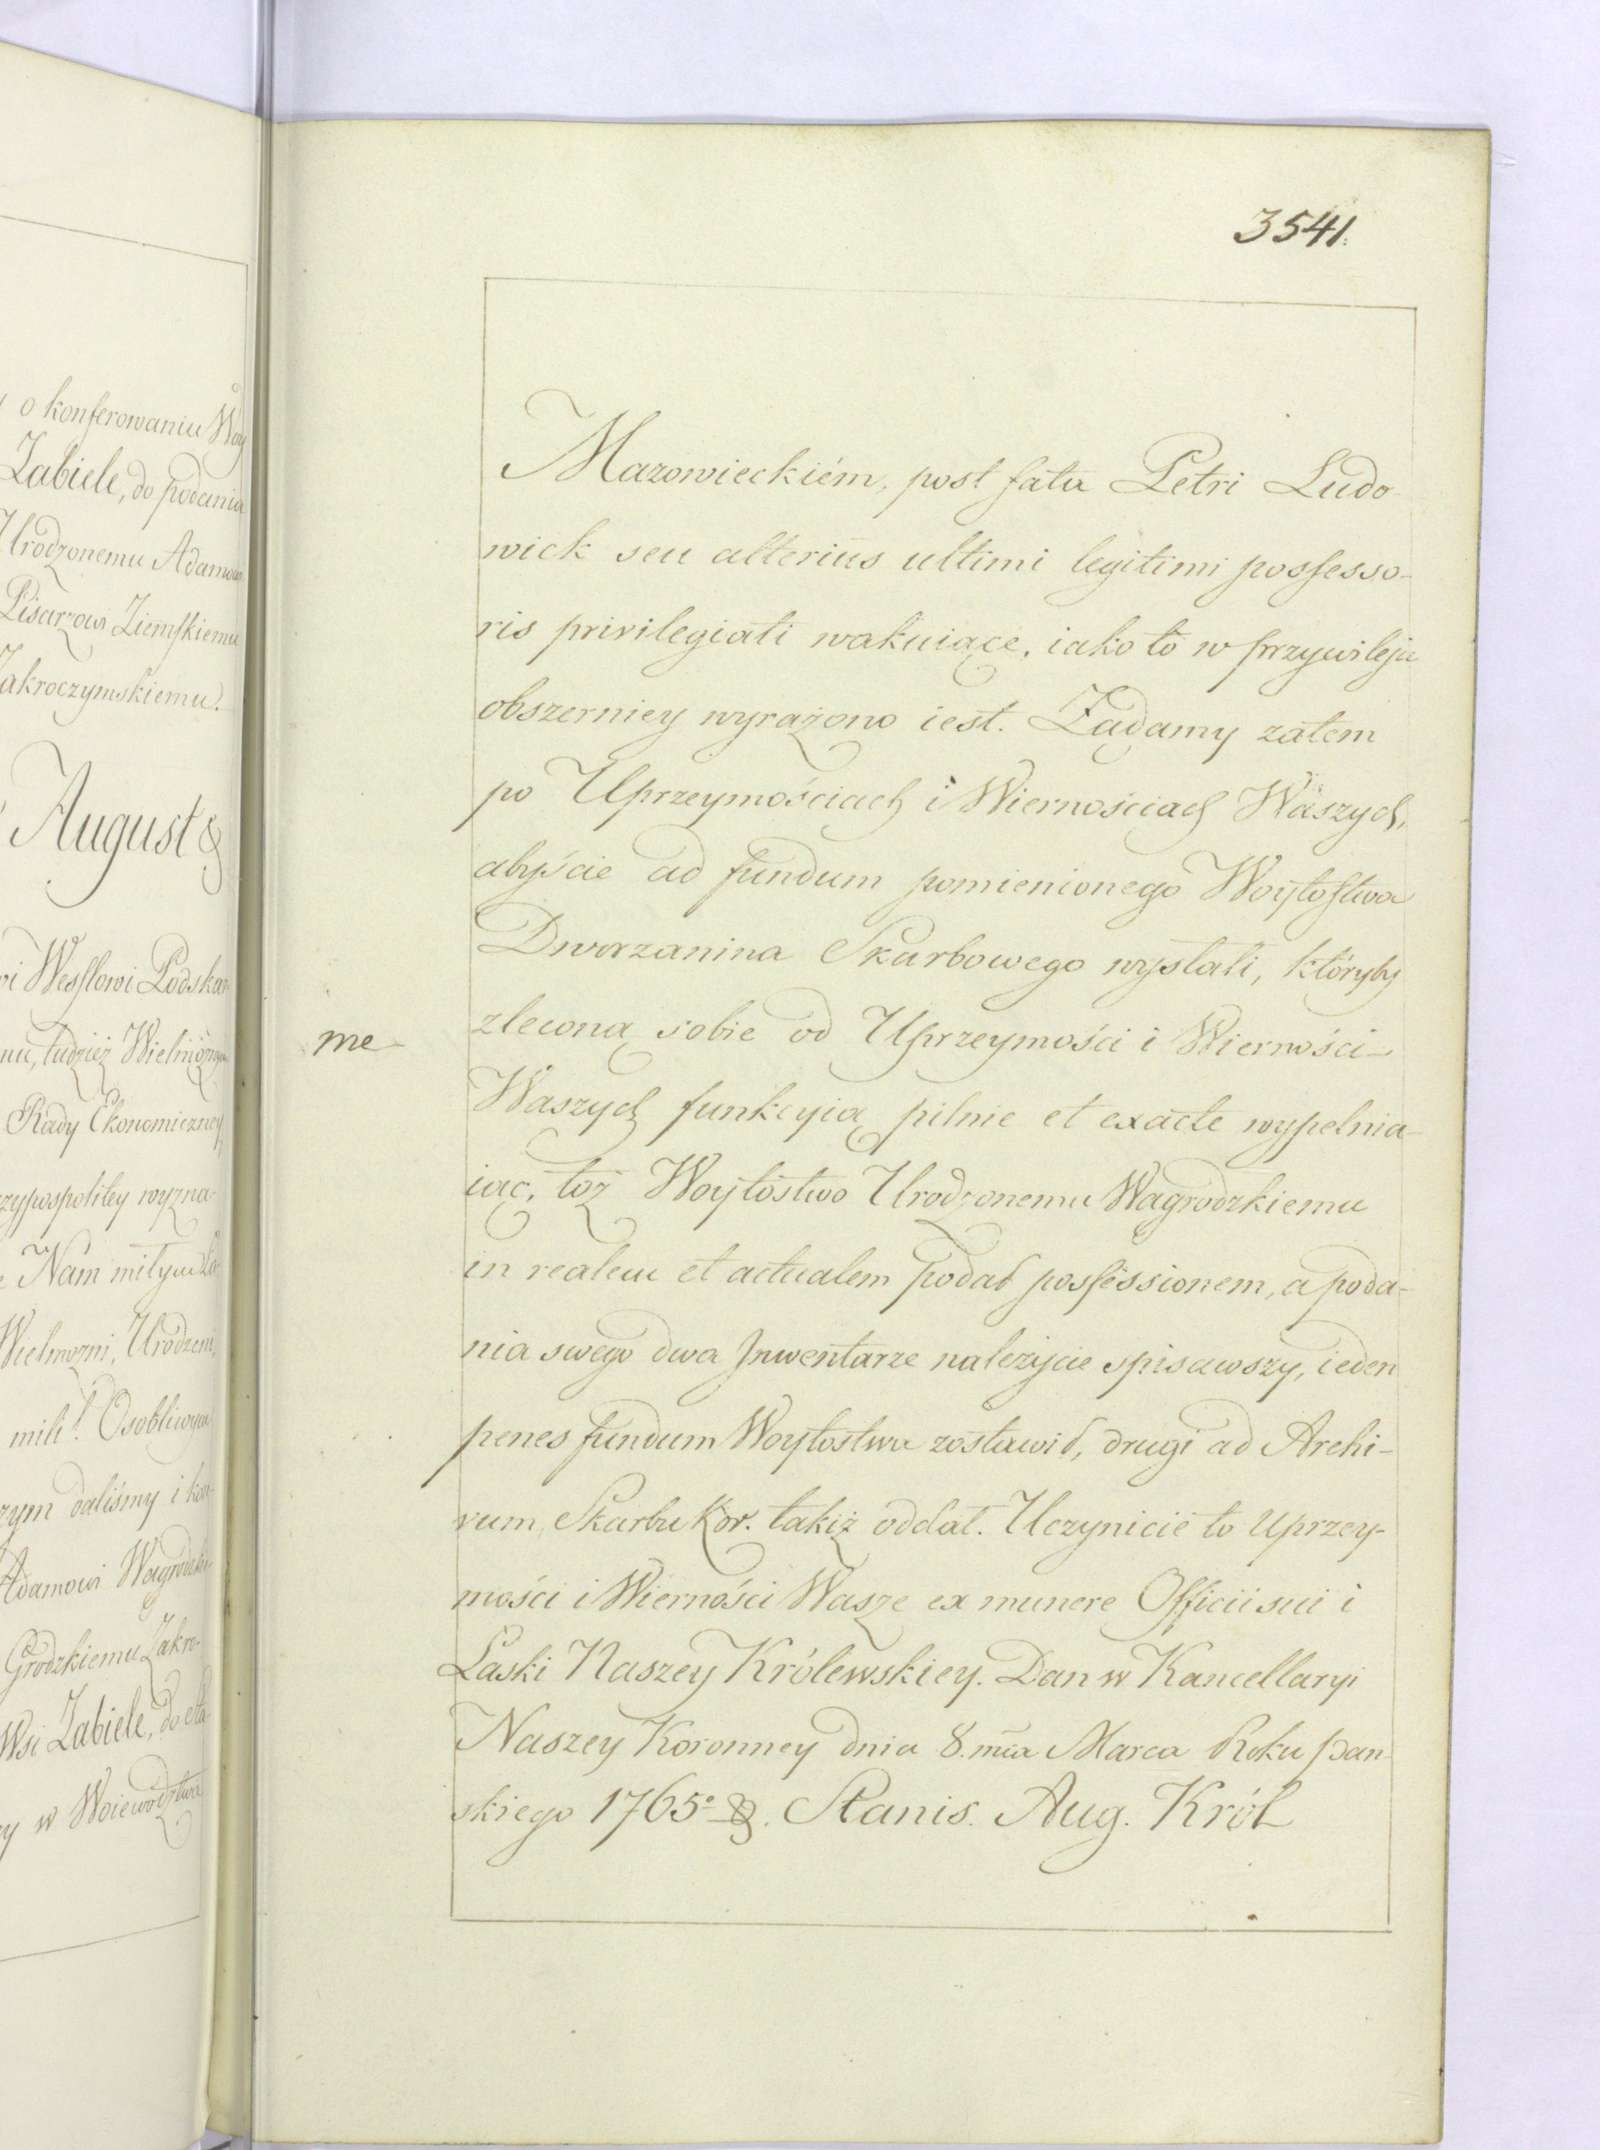 o konferowaniu Woy
Zabiele, do podania
Urodzonemu Adamow
Pisarzowi Ziemskiemu
Zakroczymskiemu.
August &
Wesslowi Podskar
nu, tudzież Wielmożnym
Rady Ekonomiczney
zypospolitey wyzna-
Nam miłym
Wielmożni, Urodzeni,
mili! Osobliwym
zym daliśmy i kon-
Adamowi Wagrodzki-
Grodzkiemu Zakro-
Wsi Zabiele, do sta-
w Woiewództwa
3541.
Mazowieckiém, post fata Petri Ludo-
wick seu alterius ultimi legitimi possesso-
ris privilegiati wakuiące, iako to w przywileju
obszerniey wyrażono iest. Żądamy zatem
po Uprzeymościach i Wiernościach Waszych,
abyście ad fundum pomienionego Woytostwa
Dworzanina Skarbowego wysłali, któryby
me
zleconą sobie od Uprzeymości i Wierności
Waszych funkcyią pilnie et exacte wypełnia-
iąc, toż Woytóstwo Urodzonemu Wagrodzkiemu
in realem et actualem podał possessionem, a poda-
nia swego dwa Inwentarze należycie spisawszy, ieden
penes fundum Woytostwa zostawił, drugi ad Archi-
vum Skarbu Kor. takiż oddał. Uczynicie to Uprzey-
mości i Wierności Wasze ex munere Officii sui i
Łaski Naszey Królewskiey. Dan w Kancellaryi
Naszey Koronney dnia 8. mca Marca Roku pań-
skiego 1765º &. Stanis. Aug. Król